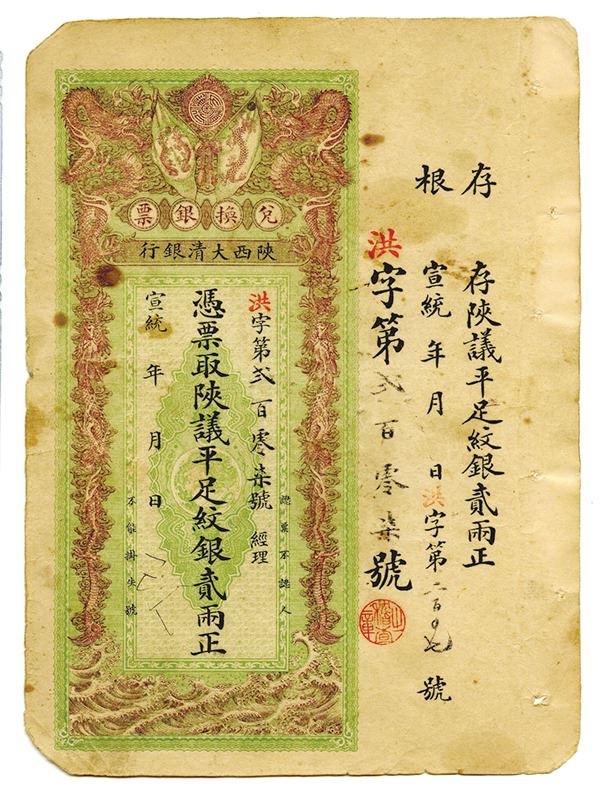 存根
存陝議平足紋銀貳兩正
宣統 年 月 日 洪字第二百〇七號
洪字第弍百零柒號
兌換銀票
陝西大清銀行
認票不認人
洪字第弍百零柒號 經理
憑票取陝議平足紋銀貳兩正
宣統 年 月 日
不能掛失號